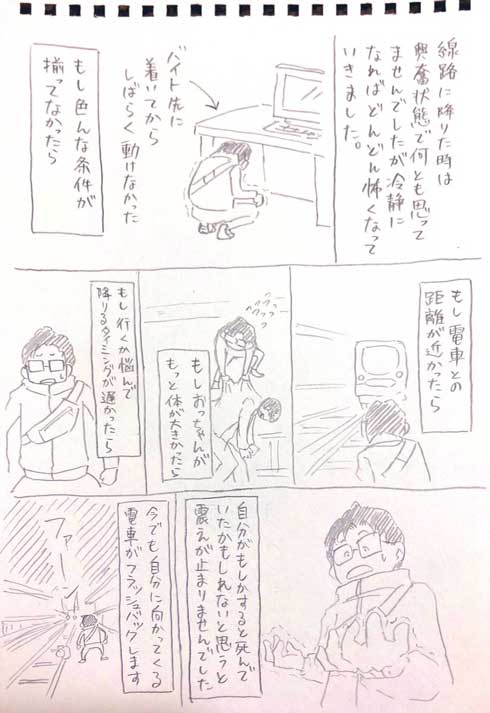 線路に降りた時は
興奮状態で何とも思って
ませんでしたが冷静に
なればどんどん怖くなって
いきました。
バイト先に
着いてから
しばらく動けなかった
もし色んな条件が
揃ってなかったら
もし電車との
距離が近かったら
もしおっちゃんが
もっと体が大きかったら
もし行くか悩んで
降りるタイミングが遅かったら
自分がもしかすると死んで
いたかもしれないと思うと
震えが止まりませんでした
今でも自分に向かってくる
電車がフラッシュバックします
ファーン